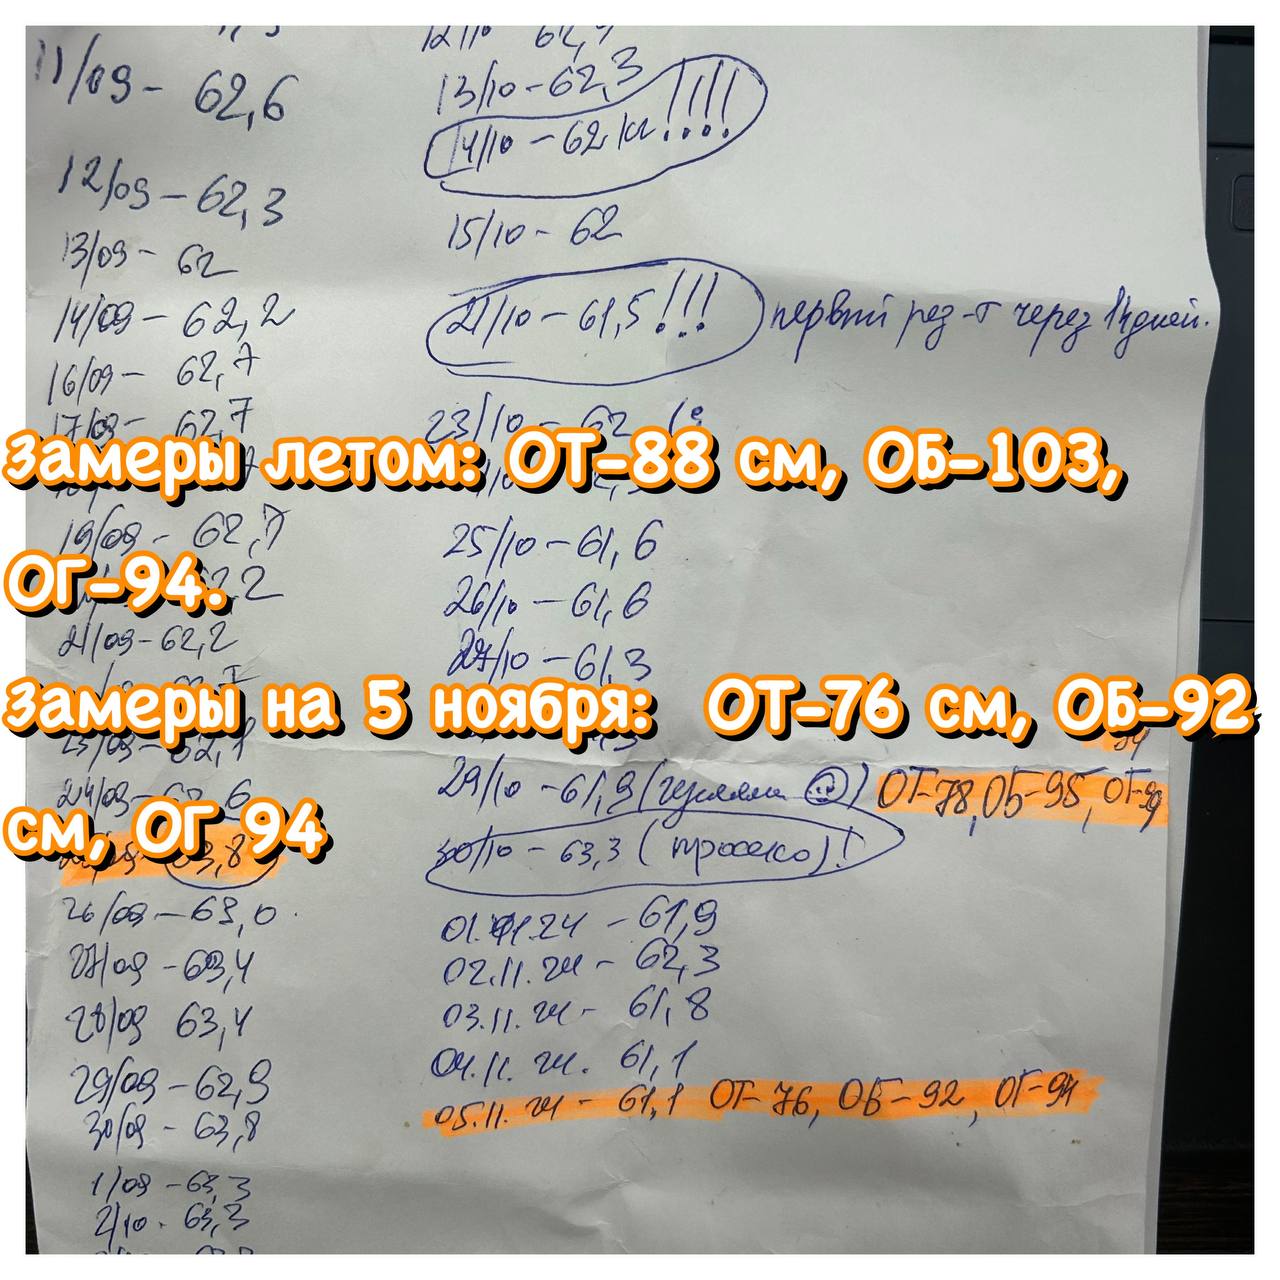 11/09 - 62,6
12/09 - 62,3
13/09 - 62
14/09 - 62,2
16/09 - 62,7
17/09 - 62,7
19/09 - 62,7
21/09 - 62,2
23/09 - 62,1
63,8
26/09 - 63,0
27/09 - 63,4
28/09 63,4
29/09 - 62,9
30/09 - 63,8
1/09 - 63,3
2/10 - 63,3
12/10
13/10 - 62,3
14/10 - 62 кг !!!!
15/10 - 62
21/10 - 61,5!!! первый рез-т через 14дней.
23/10 - 62
25/10 - 61,6
26/10 - 61,6
27/10 - 61,3
29/10 - 61,9 (гуляли ☺) ОТ-78, ОБ-95,
94
30/10 - 63,3 ( )!
01.11.24 - 61,9
02.11.24 - 62,3
03.11.24 - 61,8
04.11.24. 61,1
05.11.24 - 61,1 ОТ-76, ОБ-92, ОГ-94
Замеры летом: ОТ-88 см, ОБ-103,
ОГ-94.
Замеры на 5 ноября: ОТ-76 см, ОБ-92
см, ОГ 94